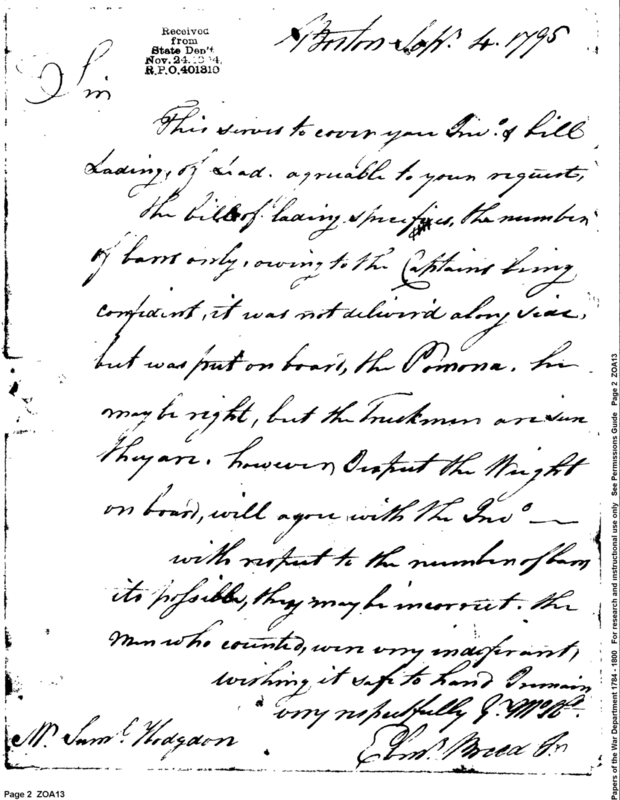 Received
from
State Dep't
Nov. 24. 1894.
R.P.O. 401310
Boston Sepr. 4. 1795
Sir
This serves to cover you Invo. & bill
Lading, of Lead. agreable to your request,
The bill of lading specifies, the number
of barrs only, owing to the Captains being
confident, it was not deliverd along side,
but was put on board, the Pomona. he
may be right, but the Truckmen are sure
they are. however, I expect the Weight
on board, will agree with the Invo. —
with respect to the number of barrs
its possible, they may be incorrect. the
Men who counted, were very indifferent,
wishing it safe to hand I remain
very respectfully Y. Mo. H.
Ebenr. Breed Jr
Mr. Saml. Hodgdon
Page 2 ZOA13
Papers of the War Department 1784 - 1800 For research and instructional use only See Permissions Guide Page 2 ZOA13